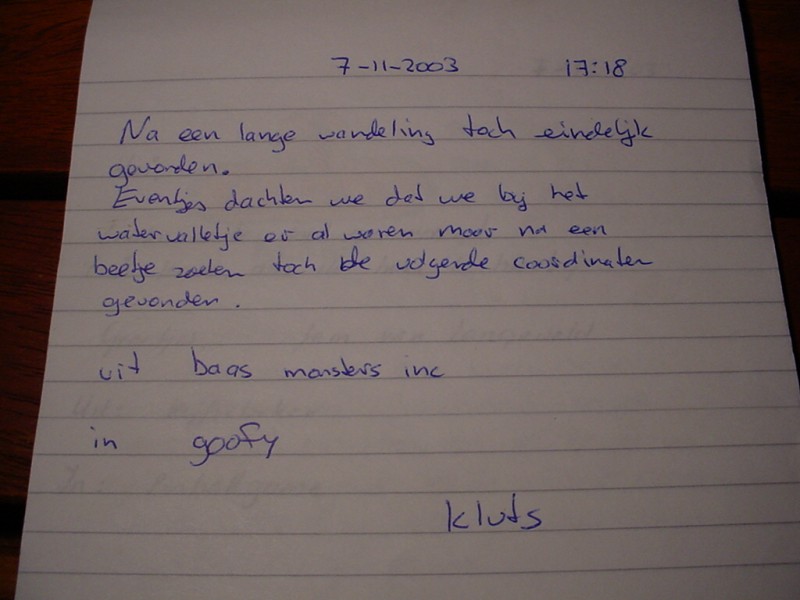 7-11-2003 17:18
Na een lange wandeling toch eindelijk
gevonden.
Eventjes dachten we dat we bij het
watervalletje er al waren maar na een
beetje zoeken toch de volgende coordinaten
gevonden.
uit baas monsters inc
in goofy
kluts